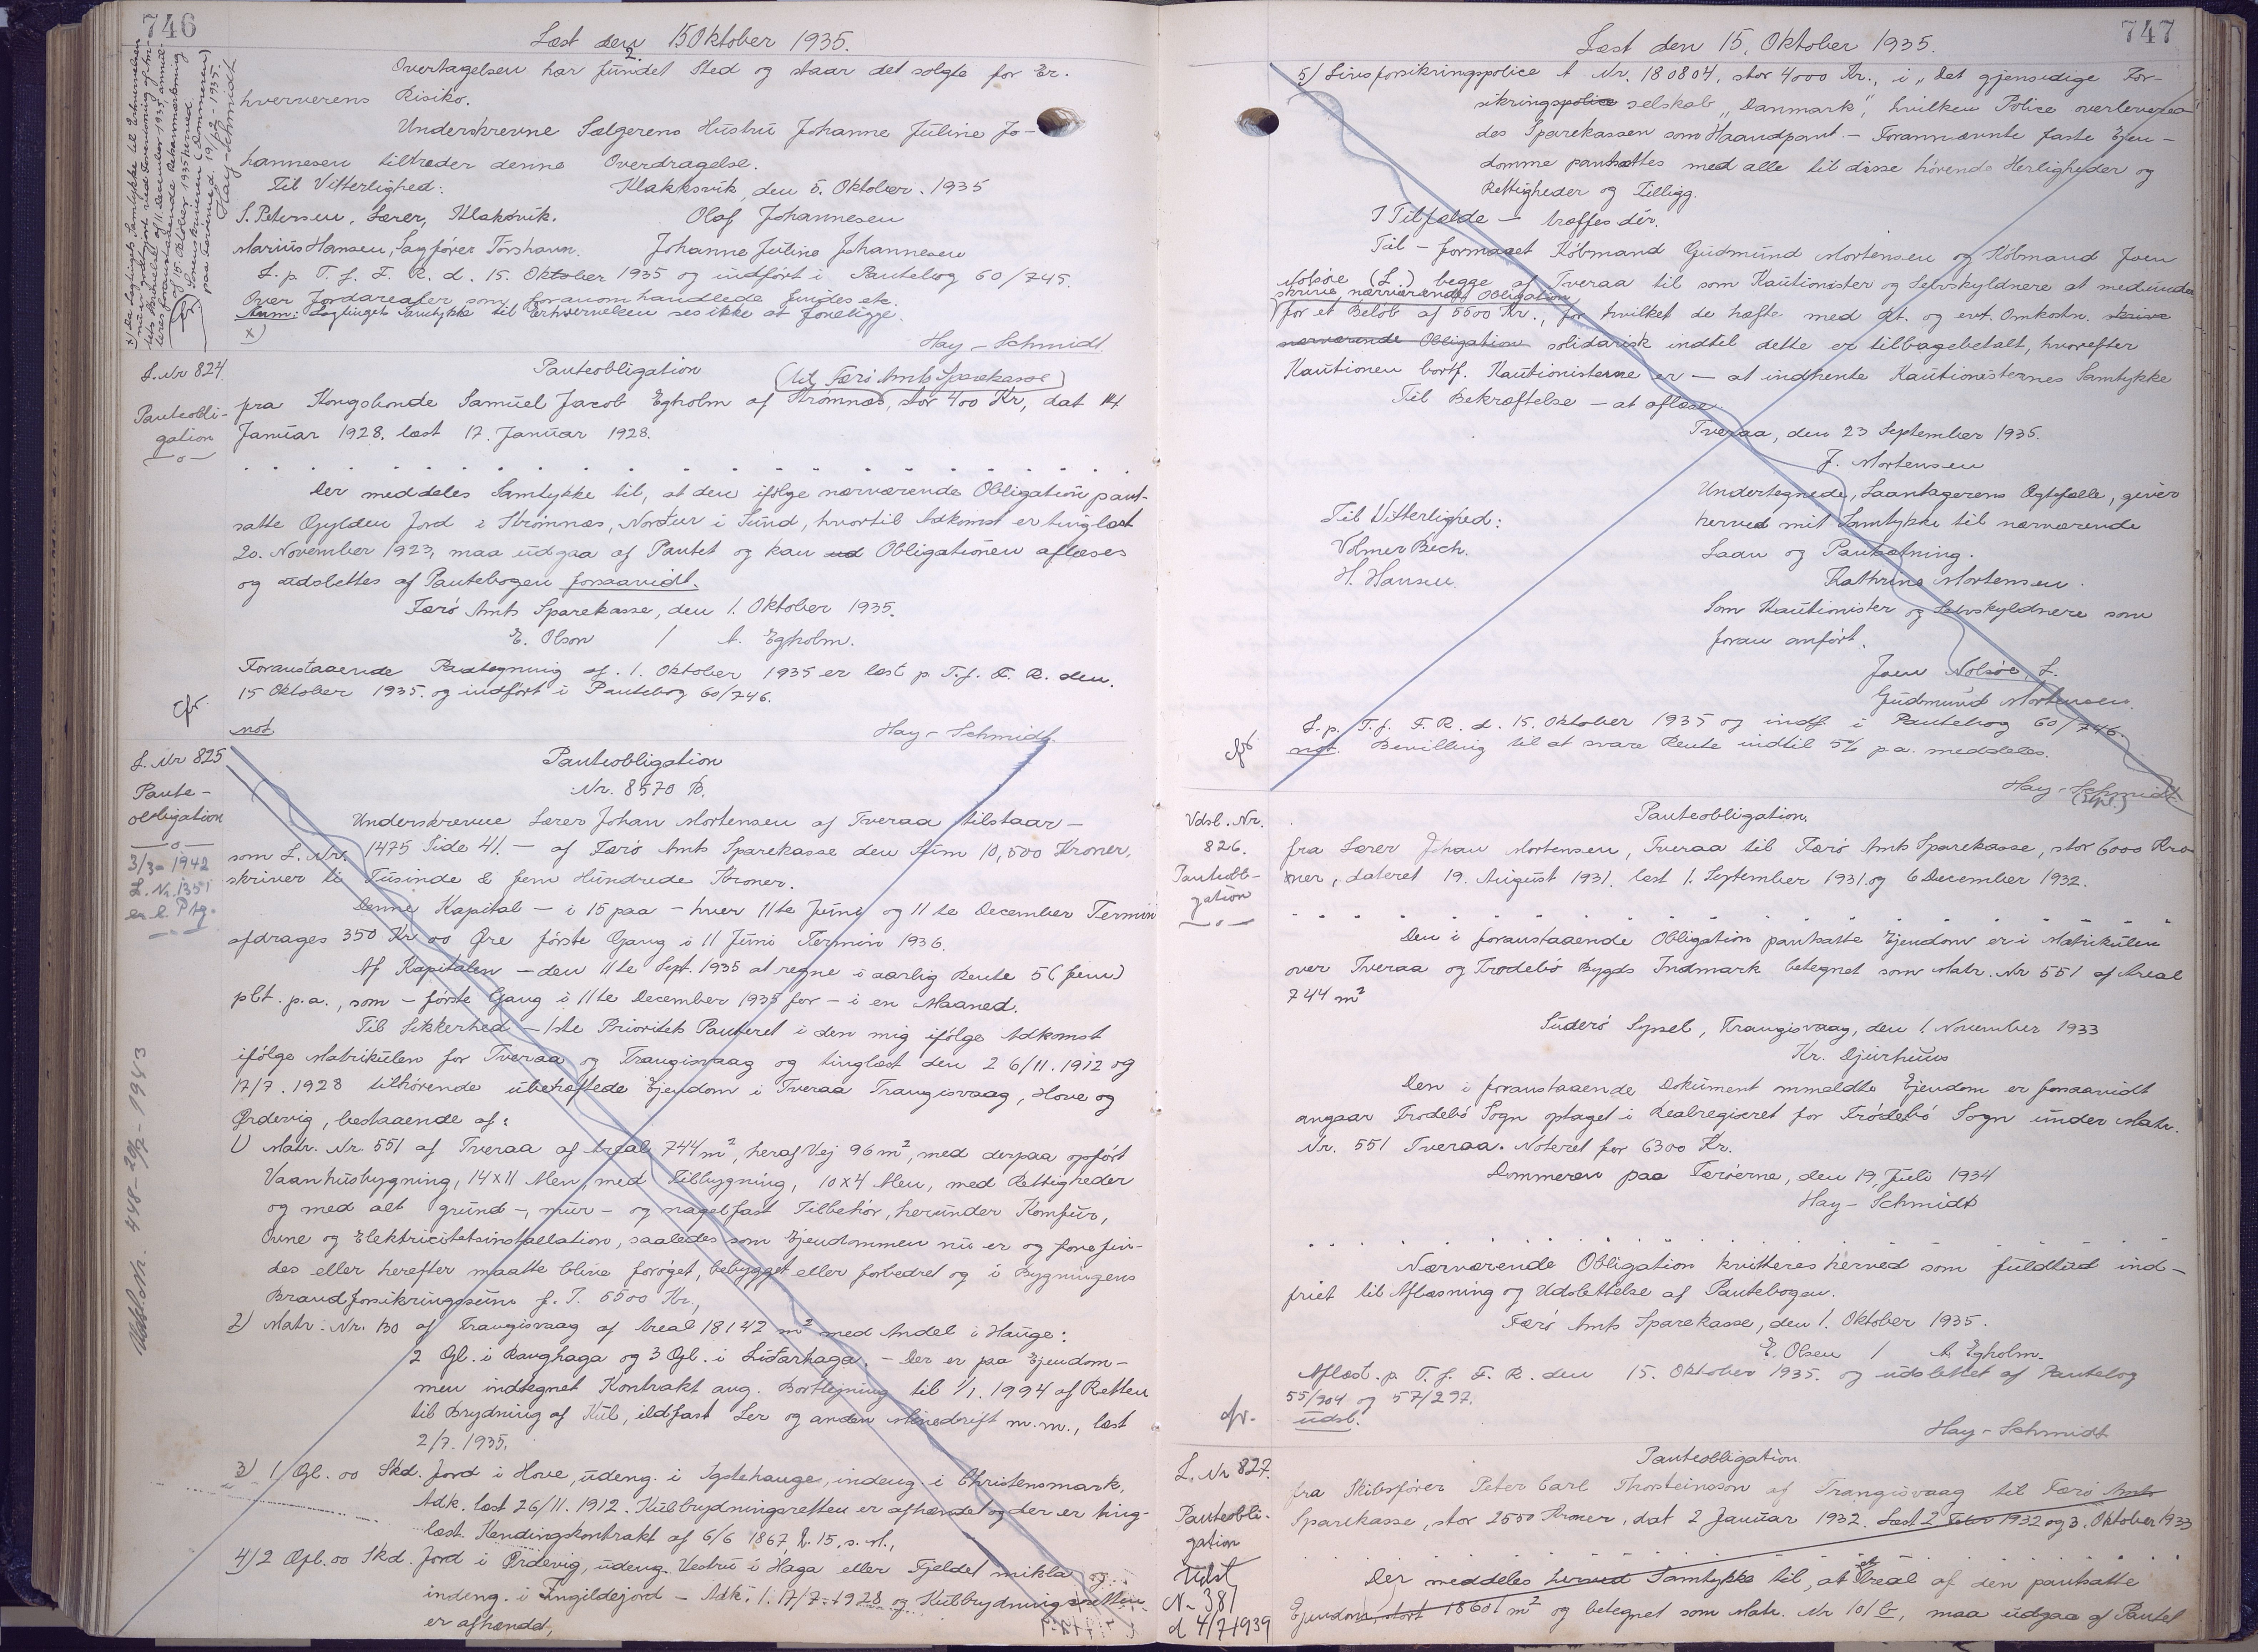 746
Læst den 15 Oktober 1935.
2.
Overtagelsen har fundet Sted og staar det solgte for Er-
hververens Risiko.
Underskrevne Sælgerens Hustru Johanne Juline Jo-
hannesen tiltræder denne Overdragelse.
Til Vitterlighed: Klakksvik, den 5. Oktober. 1935
S. Petersen, Lærer, Klaksvik. Olaf Johannesen
Marius Hansen, Sagfører Tórshavn. Johanne Juline Johannesen
L. p. T. f. F. R. d. 15. Oktober 1935 og indført i Pantebog 60/745.
Over Jordarealer som foranomhandlede findes etc.
Anm: Lagtingets Samtykke til Erhvervelsen ses ikke at foreligge.
x)
Hay-Schmidt
L. Nr 824.
Panteobli-
gation
Panteobligation
(til Færø Amts Sparekasse)
fra Kongsbonde Samuel Jacob Egholm af Strømnæs, stor 400 Kr, dat 14
Januar 1928. læst 17. Januar 1928.
Der meddeles Samtykke til, at den ifølge nærværende Obligation pant-
satte Gylden Jord i Strømnæs, Nordur i Sund, hvortil Adkomst er tinglæst
20. November 1923, maa udgaa af Pantet og kan ud Obligationen aflæses
og udslettes af Pantebogen forsaavidt.
Færø Amts Sparekasse, den 1. Oktober 1935.
E. Olsen / A. Egholm.
Foranstaaende Paategning af 1. Oktober 1935 er læst p. T. f. F. R. den.
15 Oktober 1935. og indført i Pantebog 60/746.
cfr.
not
Hay-Schmidt.
L. Nr 825
Pante-
obligation
3/3-1942
L. Nr. 1351
Panteobligation
Nr. 8570 B.
Underskrevne Lærer Johan Mortensen af Tveraa tilstaar —
som L. Nr. 1475 Side 41. — af Færø Amts Sparekasse den Sum 10,500 Kroner,
skriver ti Tusinde & fem Hundrede Kroner.
Denne Kapital — i 15 paa — hver 11te Juni og 11te December Termin
afdrages 350 Kr 00 Øre første Gang i 11 Juni Termin 1936.
Af Kapitalen — den 11te Sept. 1935 at regne i aarlig Rente 5 (fem)
pCt. p.a., som — første Gang i 11te December 1935 for — i en Maaned.
Til Sikkerhed — 1ste Prioritets Panteret i den mig ifølge Adkomst
ifølge Matrikulen for Tveraa og Trangisvaag og tinglæst den 26/11. 1912 og
17/7. 1928 tilhørende ubehæftede Ejendom i Tveraa Trangisvaag, Hove og
Ørdevig, bestaaende af:
1) Matr. Nr. 551 af Tveraa af Areal 744 m², heraf Vej 96 m², med derpaa opført
Vaanhusbygning, 14x11 Alen, med Tilbygning, 10x4 Alen, med Rettigheder
og med alt grund-, mur- og nagelfast Tilbehør, herunder Komfur,
Ovne og Elektricitetsinstallation, saaledes som Ejendommen nu er og forefin-
des eller herefter maatte blive forøget, bebygget eller forbedret og i Bygningens
Brandforsikringssum f. T. 5500 Kr.,
2) Matr. Nr. 130 af Trangisvaag af Areal 18142 m² med Andel i Hauge:
2 Gl. i Raughaga og 3 Gl. i Lidarhaga. — Der er paa Ejendom-
men indtegnet Kontrakt ang. Bortlejning til 1/1. 1994 af Retten
til Brydning af Kul, ildfast Ler og anden Minedrift m.m., læst
2/7. 1935.
3) 1 Gl. 00 Skd. Jord i Hove, udeng. i Agstehauge, indeng. i Christensmark,
Adk. læst 26/11. 1912. Kulbrydningsretten er afhændet og der er ting-
læst Kendingskontrakt af 6/6 1867, L. 15. s. A.,
4) 2 Gl. 00 Skd. Jord i Ørdevig, udeng. Vestru i Haga eller Fjeldet mikla og
indeng. i Fingildejord — Adk. l. 17/7. 1928 og Kulbrydningsretten
er afhændet,
Udsl. Nr. 448 - 20/7 - 1943
747
Læst den 15, Oktober 1935.
5) Livsforsikringspolice A Nr. 180804, stor 4000 Kr., i „Det gjensidige For-
sikringspolice selskab „Danmark", hvilken Police overlevere
des Sparekassen som Haandpant. — Forannævnte faste Ejen-
domme pantsættes med alle til disse hørende Herligheder og
Rettigheder og Tilligg.
I Tilfælde — træffes dér.
Til — formaaet Købmand Gudmund Mortensen og Købmand Joen
Nolsøe (L.) begge af Tveraa til som Kautionister og Selvskyldnere at medunder
skrive nærværende Obligation
for et Beløb af 5500 Kr., for hvilket de hæfte med Rt. og evt. Omkostn. skrive
nærværende Obligation solidarisk indtil dette er tilbagebetalt, hvorefter
Kautionen bortf. Kautionisterne er — at indhente Kautionisternes Samtykke
Til Bekræftelse — at aflæse.
Tveraa, den 23 September 1935.
J. Mortensen
Undertegnede, Laantagerens Ægtefælle, giver
Til Vitterlighed: herved mit Samtykke til nærværende
Volmer Bech. Laan og Pantsætning.
H. Hansen. Kathrine Mortensen.
Som Kautionister og Selvskyldnere som
foran anført.
Joen Nolsøe, L.
Gudmund Mortensen.
L. p. T. f. F. R. d. 15. Oktober 1935 og indf. i Pantebog 60/746.
cfr.
not. Bevilling til at svare Rente indtil 5% p.a. meddeles.
Hay-Schmidt
Udsl. Nr.
826.
Panteobli-
gation
Panteobligation.
fra Lærer Johan Mortensen, Tveraa til Færø Amts Sparekasse, stor 6000 Kro-
ner, dateret 19. August 1931. læst 1. September 1931. og 6 December 1932.
Den i foranstaaende Obligation pantsatte Ejendom er i Matrikulen
over Tveraa og Frodebø Bygds Indmark betegnet som Matr. Nr 551 af Areal
744 m²
Suderø Syssel, Trangisvaag, den 1 November 1933
Kr. Djurhuus
Den i foranstaaende Dokument ommeldte Ejendom er forsaavidt
angaar Frodebø Sogn optaget i Realregistret for Frodebø Sogn under Matr.
Nr. 551 Tveraa. Noteret for 6300 Kr.
Dommeren paa Færøerne, den 19, Juli 1934
Hay-Schmidt
Nærværende Obligation kvitteres herved som fuldtud ind-
friet til Aflæsning og Udslettelse af Pantebogen.
Færø Amts Sparekasse, den 1. Oktober 1935.
E. Olsen / A. Egholm.
Aflæst. p. T. f. F. R. den 15. Oktober 1935. og udslettet af Pantebog
55/904 og 57/297.
cfr.
udsl.
Hay-Schmidt
L. Nr 827.
Panteobli-
gation
Udsl
N- 381
d 4/7 1939
Panteobligation
fra Skibsfører Peter Carl Thorsteinsson af Trangisvaag til Færø Amts
Sparekasse, stor 2550 Kroner, dat 2 Januar 1932. Læst 2 Febr 1932 og 3. Oktober 1933
Der meddeles herved Samtykke til, at et Areal af den pantsatte
Ejendom, stort 18601 m² og betegnet som Matr. Nr 101 b, maa udgaa af Pantet